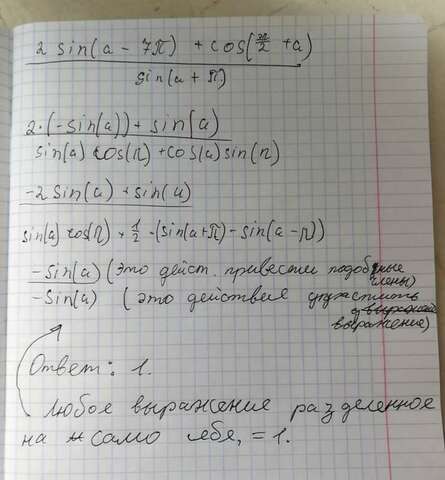 2 sin(a - 7π) + cos(3π/2 + a)
sin(a + π)
2·(-sin(a)) + sin(a)
sin(a) cos(π) + cos(a) sin(π)
-2 sin(a) + sin(a)
sin(a) cos(π) + 1/2 ·(sin(a+π) - sin(a-π))
-sin(a) (это дейст. привести подобные члены)
-sin(a) (это действие упростить
выражение)
Ответ: 1.
Любое выражение разделенное
на само себя, = 1.